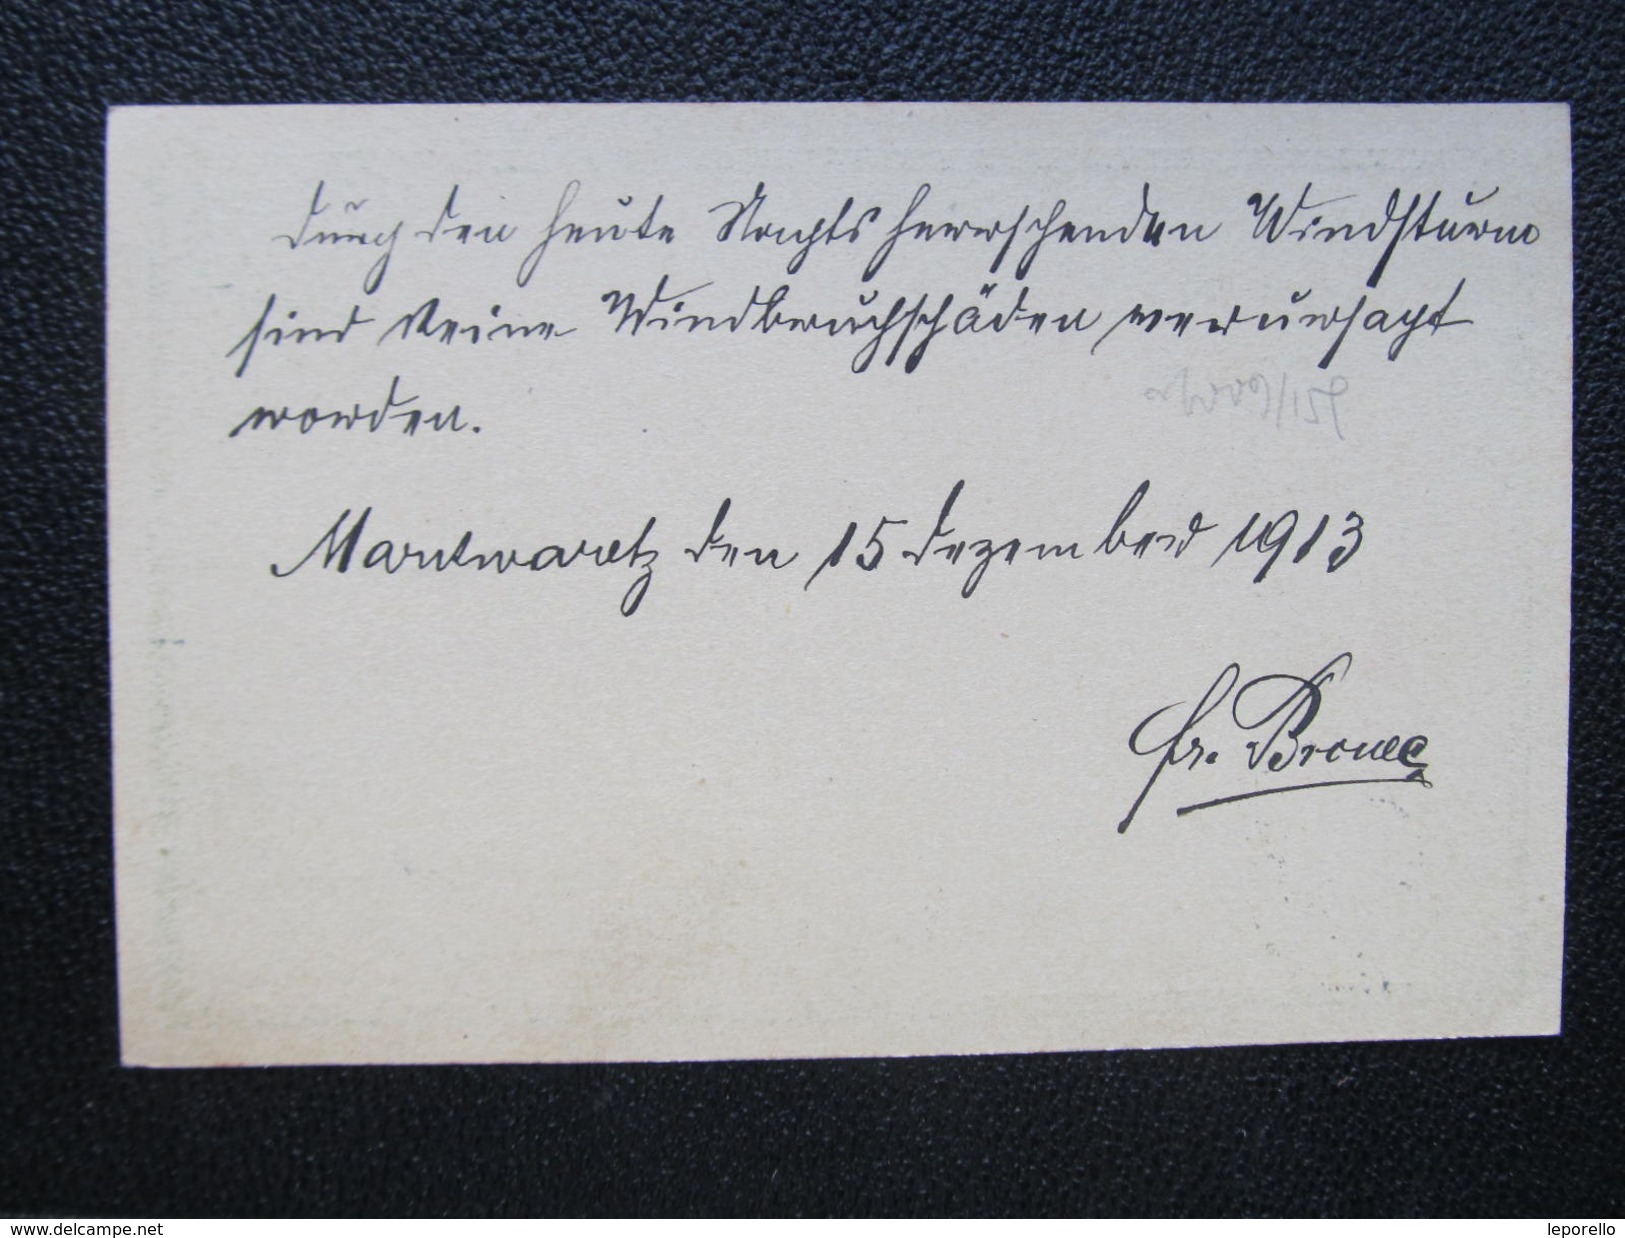 durch den heute Nachts herrschenden Windsturm
sind keine Windbruchschäden verursacht
worden.
Markwaretz den 15 dezember 1913
fr. Bronec
www.delcampe.net
leporello